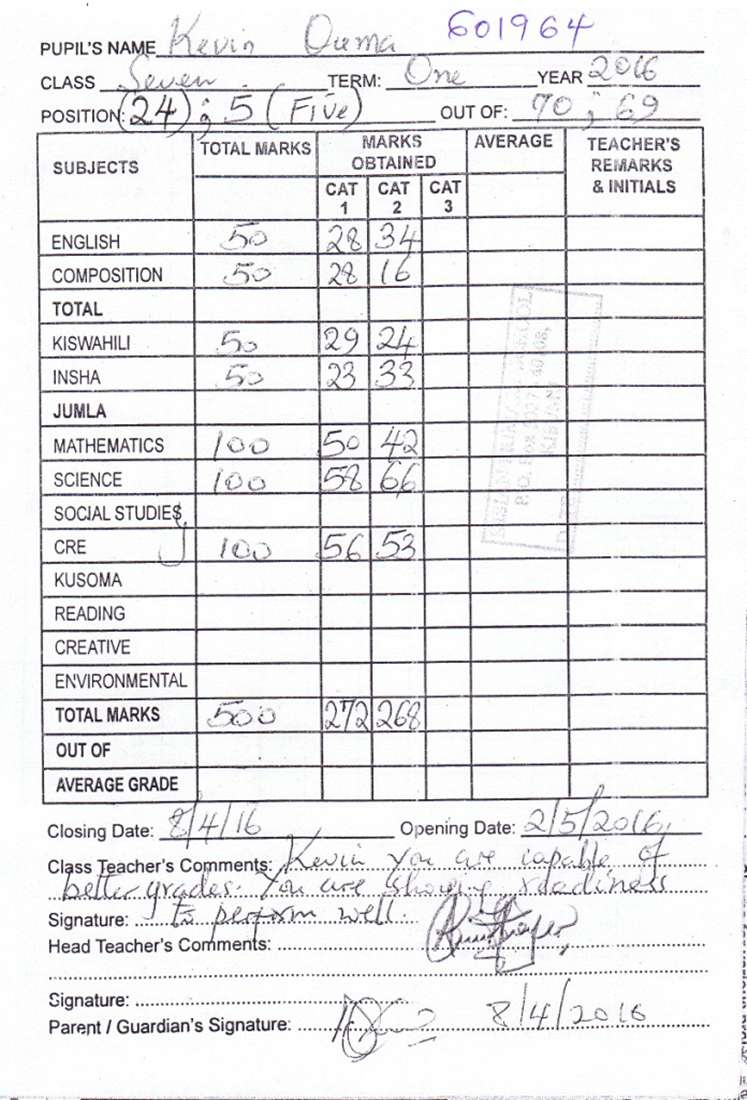 PUPIL'S NAME Kevin Ouma 601964
CLASS Seven TERM: One YEAR 2016
POSITION: (24) ; 5 (Five) OUT OF: 70 ; 69
SUBJECTS TOTAL MARKS MARKS OBTAINED AVERAGE TEACHER'S REMARKS & INITIALS
CAT 1 CAT 2 CAT 3
ENGLISH 50 28 34
COMPOSITION 50 28 16
TOTAL
KISWAHILI 50 29 24
INSHA 50 23 33
JUMLA
MATHEMATICS 100 50 42
SCIENCE 100 58 66
SOCIAL STUDIES
CRE 100 56 53
KUSOMA
READING
CREATIVE
ENVIRONMENTAL
TOTAL MARKS 500 272 268
OUT OF
AVERAGE GRADE
SCHOOL
P.O. Box
Closing Date: 8/4/16 Opening Date: 2/5/2016
Class Teacher's Comments: Kevin you are capable of
better grades. You are showing readiness
Signature: to perform well.
Head Teacher's Comments:
Signature:
Parent / Guardian's Signature: 8/4/2016